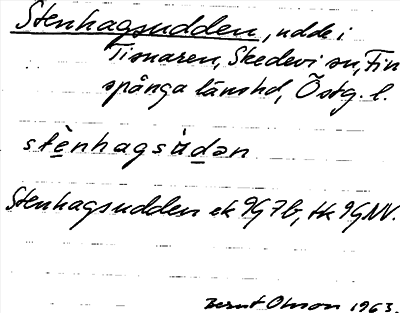 Stenhagsudden, udde i
Tisnaren, Skedevi sn, Fin
spånga länshd, Östg. l.
stènhagsùdən
Stenhagsudden ek 9G7b, tk 9GNV.
Bernt Olsson 1963.